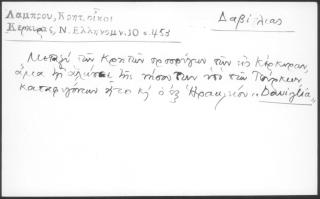 Λάμπρου, Κρητ. οἶκοι
Κερκύρας, Ν. Ἑλληνομν. 10 σ. 453
Δαβίλιας
Μεταξὺ τῶν Κρητῶν προσφύγων τῶν εἰς Κέρκυραν,
ἅμα τῇ ἁλώσει τῆς νήσου των ὑπὸ τῶν Τούρκων
καταφυγόντων ἦτο κ' ὁ ἐξ Ἡρακλείου